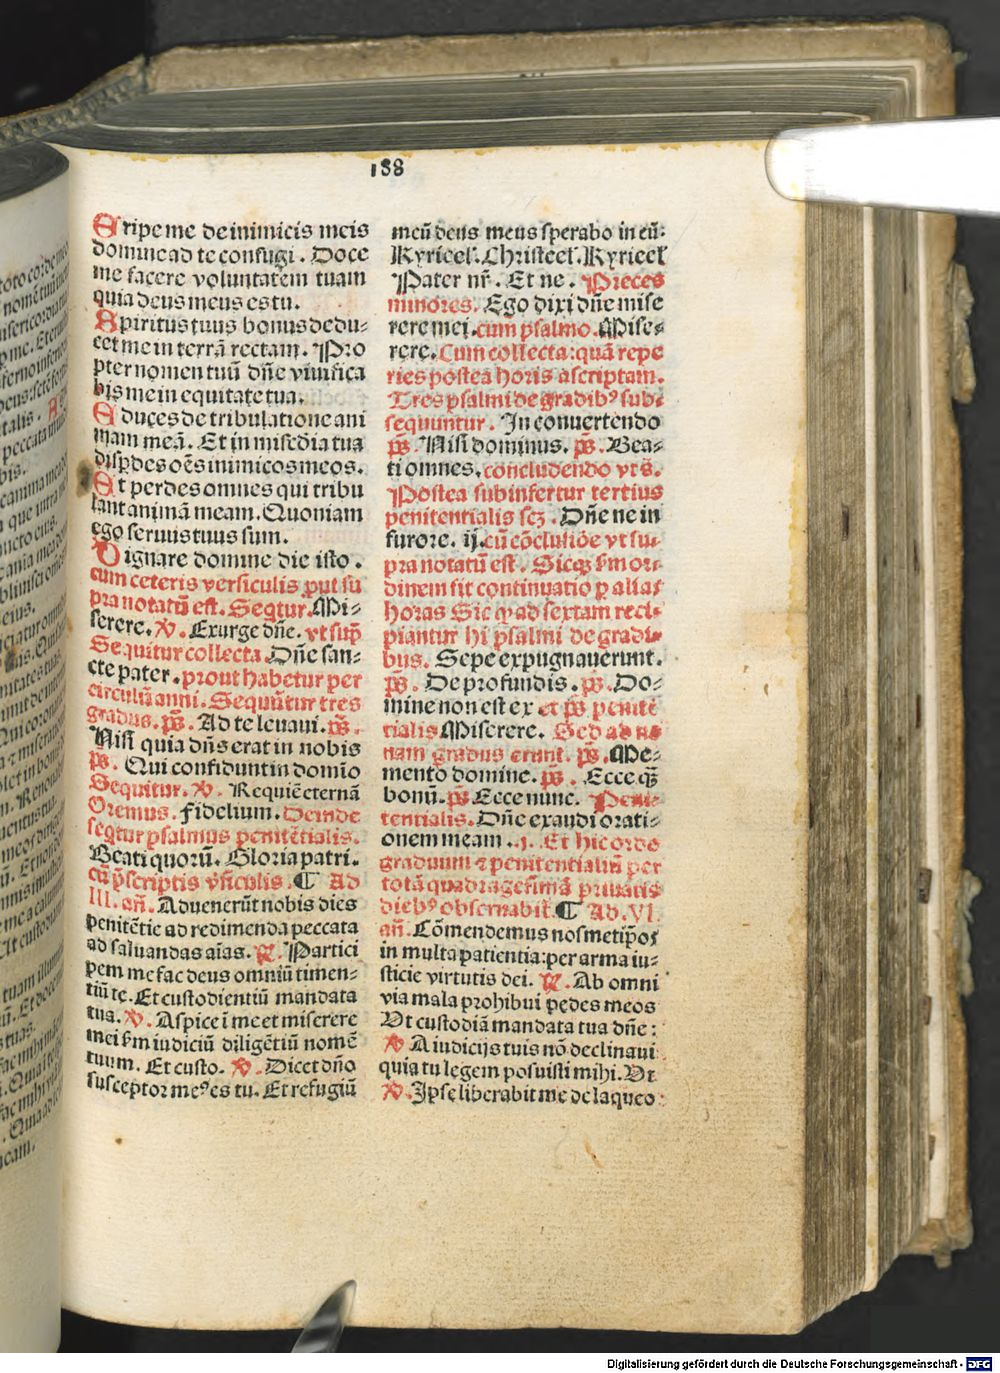 188
Eripe me de inimicis meis
domine ad te confugi. Doce
me facere voluntatem tuam
quia deus meus es tu.
Spiritus tuus bonus dedu⸗
cet me in terrā rectam. Pro
pter nomen tuū dn̄e vivifica
bis me in equitate tua.
Educes de tribulatione ani
mam meā. Et in misc̄dia tua
disp̱des oēs inimicos meos.
Et perdes omnes qui tribu
lant animā meam. Quoniam
ego servus tuus sum.
Dignare domine die isto.
cum ceteris versiculis ꝓut su
pra notatū est. Seq̄tur. Mi⸗
serere. ℣. Exurge dn̄e. vt sup̄
Sequitur collecta. Dn̄e san⸗
cte pater. prout habetur per
circulū anni. Sequūtur tres
gradus. ps̄. Ad te levavi. ps̄.
Nisi quia dn̄s erat in nobis
ps̄. Qui confidunt in domīo
Sequitur. ℣. Requiē eternā
Oremus. Fidelium. Deinde
seq̄tur psalmus penitētialis.
Beati quorū. Gloria patri.
cū p̄scriptis v̄siculis. ¶ Ad
III. an̄. Advenerūt nobis dies
penitētie ad redimenda peccata
ad salvandas aīas. ℟. Partici
pem me fac deus omniū timen⸗
tiū te. Et custodientiū mandata
tua. ℣. Aspice ī me et miserere
mei s̄m iudiciū diligētiū nomē
tuum. Et custo. ℣. Dicet dn̄o
susceptor meꝰ es tu. Et refugiū
meū deus meus sperabo in eū:
Kyrieel'. Christeel'. Kyrieel'
Pater nr̄. Et ne. Preces
minores. Ego dixi dn̄e mise
rere mei. cum psalmo. Mise⸗
rere. Cum collecta: quā repe
ries postea horis ascriptam.
Tres psalmi de gradibꝰ sub⸗
sequuntur. In convertendo
ps̄. Nisi dominus. ps̄. Bea⸗
ti omnes. concludendo vt s̄.
Postea subinfertur tertius
penitentialis scꝫ. Dn̄e ne in
furore. ij. cū cōclusiōe vt su⸗
pra notatū est. Sicqꝫ s̄m or⸗
dinem fit continuatio ꝑ alias
horas Sic ꝙ ad sextam reci⸗
piantur hi psalmi de gradi⸗
bus. Sepe expugnaverunt.
ps̄. De profundis. ps̄. Do⸗
mine non est ex et ps̄ penitē
tialis Miserere. Sed ad no
nam gradus erunt. ps̄. Me⸗
mento domine. ps̄. Ecce q̄ꝫ
bonū. ps̄ Ecce nunc. Peni⸗
tentialis. Dn̄e exaudi orati⸗
onem meam .j. Et hic ordo
graduum ⁊ penitentialiū per
totā quadragesimā privatis
diebꝰ observabit̄. ¶ Ad. VI.
an̄. Cōmendemus nosmetip̄os
in multa patientia: per arma iu⸗
sticie virtutis dei. ℟. Ab omni
via mala prohibui pedes meos
Ut custodiā mandata tua dn̄e:
℣ A iudicijs tuis nō declinavi
quia tu legem posuisti mihi. Ut
℣. Ipse liberabit me de laqueo
Digitalisierung gefördert durch die Deutsche Forschungsgemeinschaft - DFG